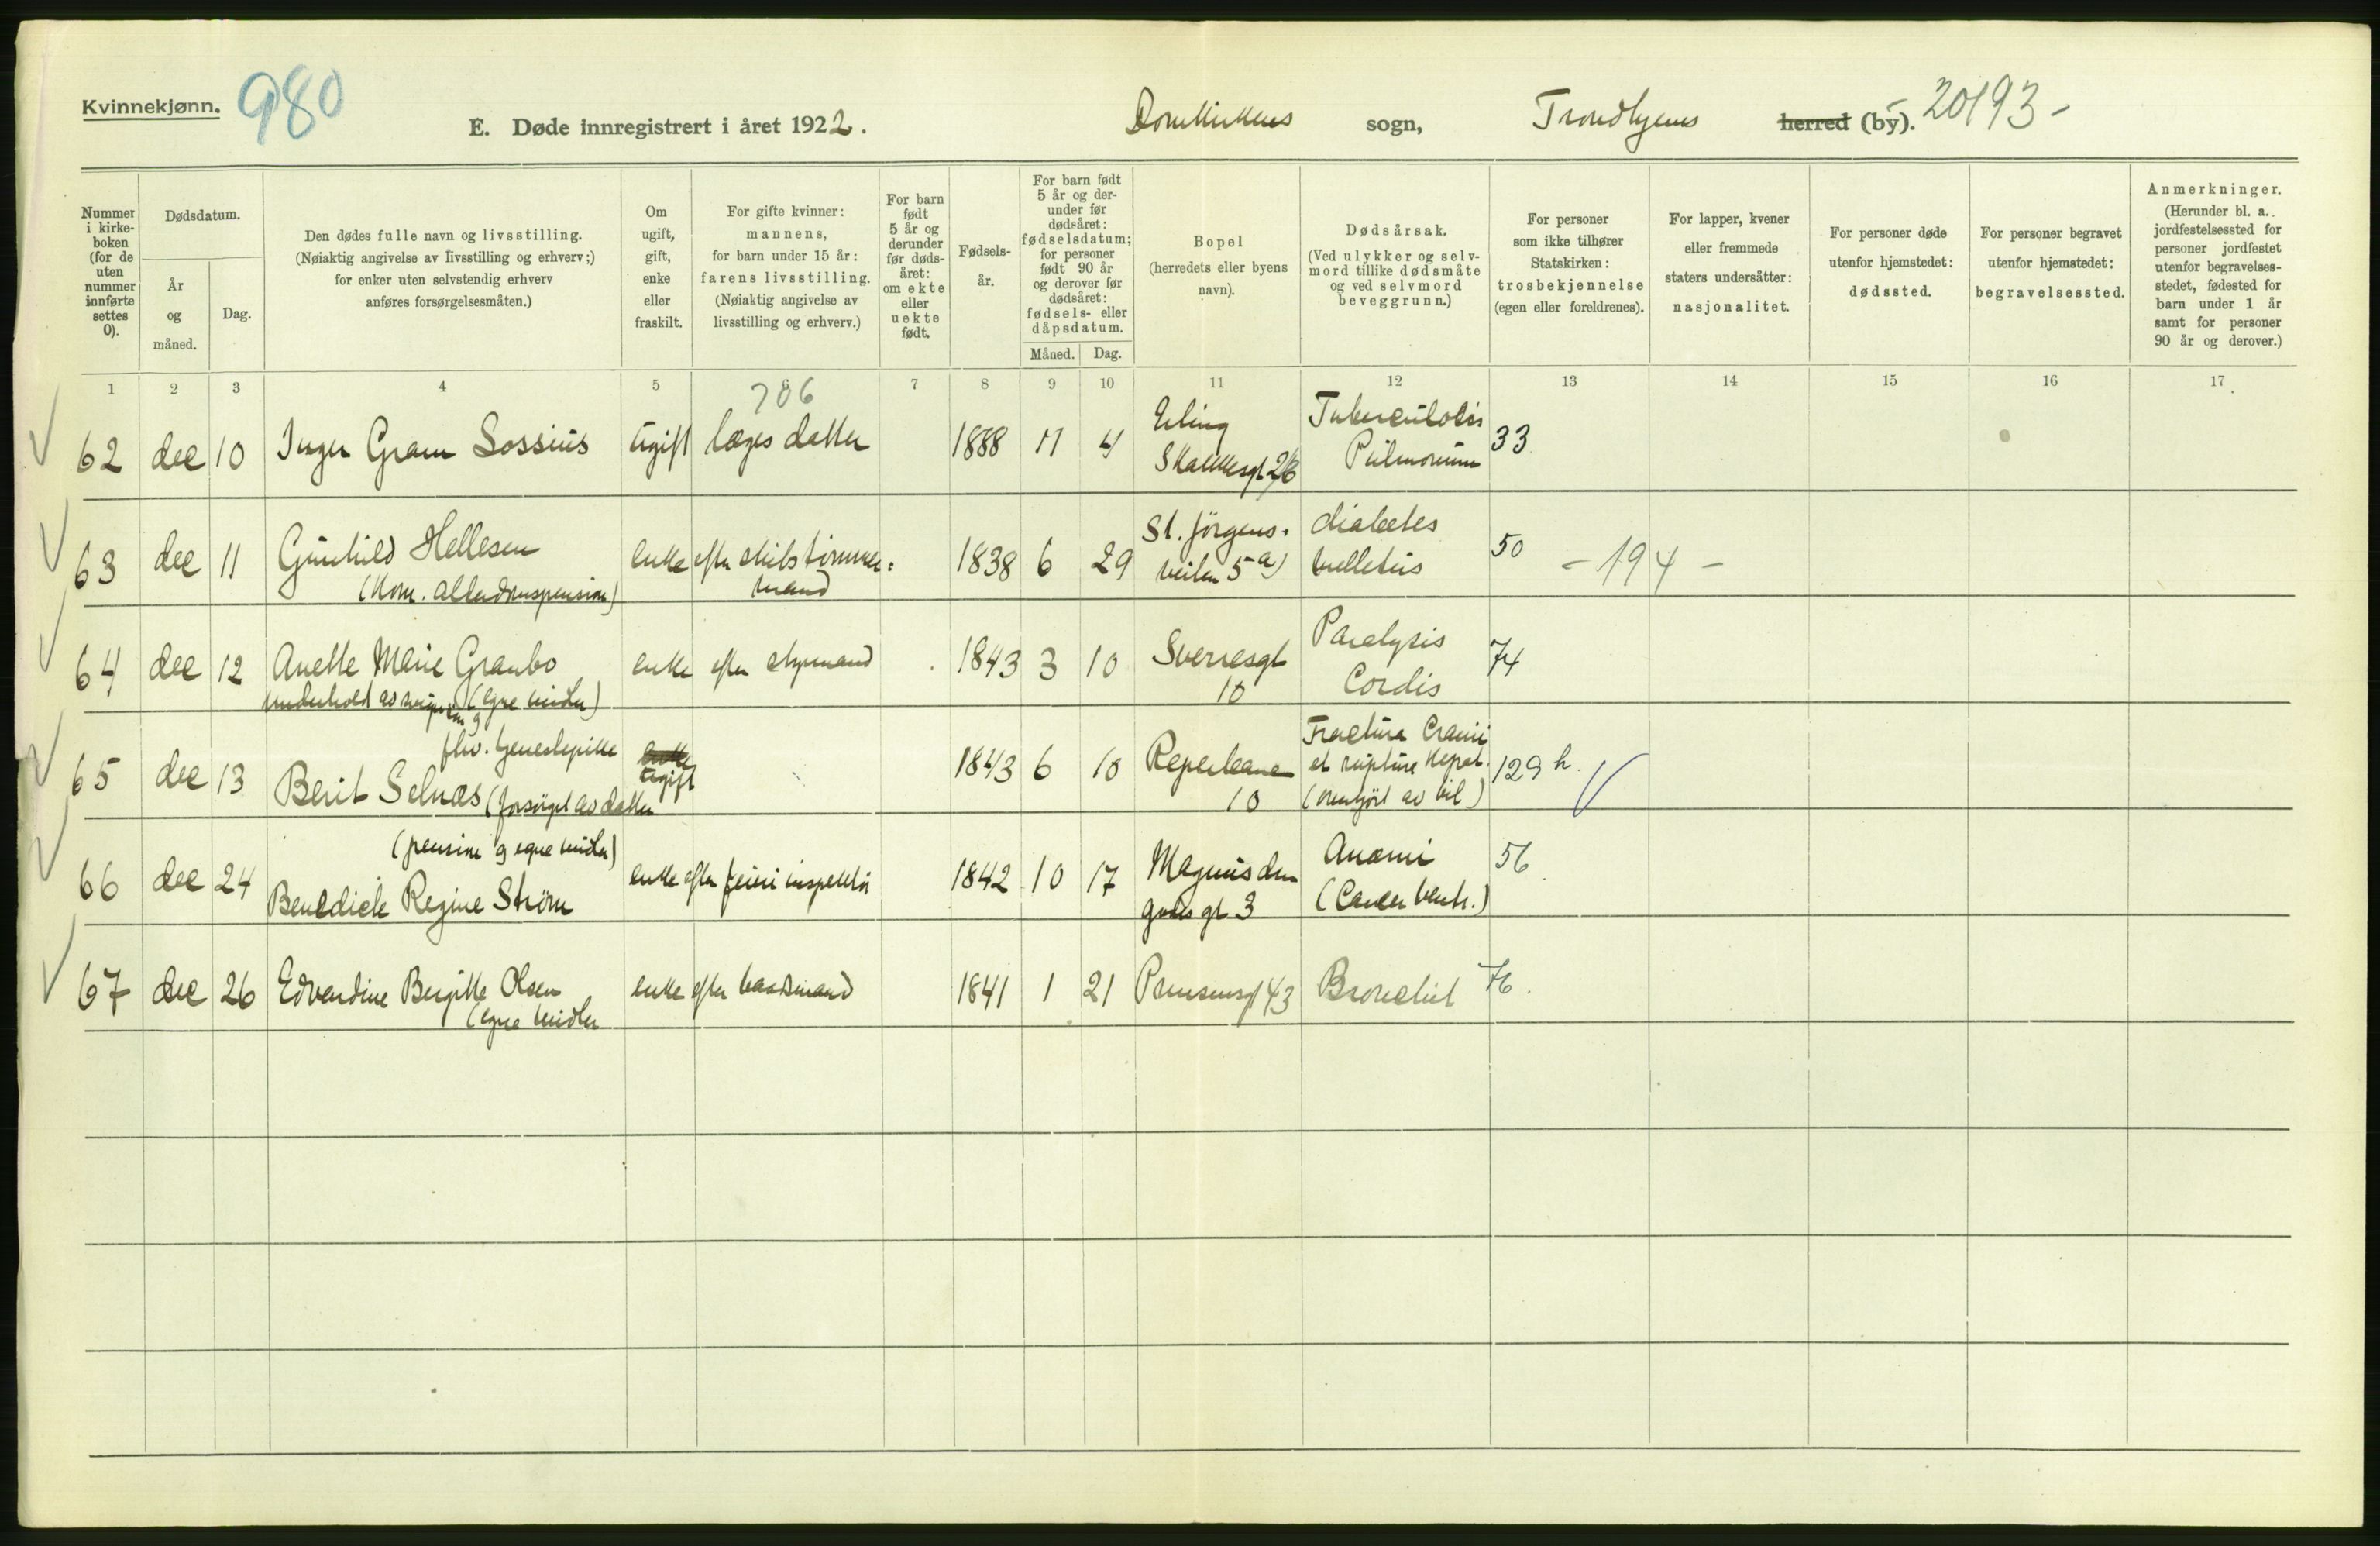 Kvinnekjønn.
980
E. Døde innregistrert i året 1922.
Domkirkens sogn, Trondhjems herred (by). 20193-
Nummer i kirkeboken (for de uten nummer innførte settes 0).
Dødsdatum.
År og måned.
Dag.
Den dødes fulle navn og livsstilling.
(Nøiaktig angivelse av livsstilling og erhverv;)
for enker uten selvstendig erhverv
anføres forsørgelsesmåten.)
Om ugift, gift, enke eller fraskilt.
For gifte kvinner: mannens, for barn under 15 år: farens livsstilling. (Nøiaktig angivelse av livsstilling og erhverv.)
For barn født 5 år og derunder før dødsåret: om ekte eller uekte født.
Fødselsår.
For barn født 5 år og derunder før dødsåret: fødselsdatum; for personer født 90 år og derover før dødsåret: fødsels- eller dåpsdatum.
Måned.
Dag.
Bopel
(herredets eller byens navn).
Dødsårsak.
(Ved ulykker og selvmord tillike dødsmåte og ved selvmord beveggrunn.)
For personer som ikke tilhører Statskirken: trosbekjennelse (egen eller foreldrenes).
For lapper, kvener eller fremmede staters undersåtter: nasjonalitet.
For personer døde utenfor hjemstedet: dødssted.
For personer begravet utenfor hjemstedet: begravelsessted.
Anmerkninger.
(Herunder bl. a. jordfestelsessted for personer jordfestet utenfor begravelsesstedet, fødested for barn under 1 år samt for personer 90 år og derover.)
1 2 3 4 5 6 7 8 9 10 11 12 13 14 15 16 17
706
62 dec 10 Inger Gram Lossius ugift læges datter 1888 11 4 Erling Skakkesgt 26 Tuberculosis Pulmonum 33
63 dec 11 Gunhild Hellesen enke efter skibstømmermand 1838 6 29 St. Jørgensveiten 5a) diabetes mellitus 50 - 194 -
(Kom. alderdomspension)
64 dec 12 Anette Marie Granbo enke efter styrmand 1843 3 10 Sverresgt 10 Paralysis Cordis 74
underhold av svigersøn og (egne midler)
65 dec 13 Berit Selnæs (forsørget av datter ugift 1843 6 10 Reperbanen 10 Fractura Cranii et ruptura Hepat. (overkjørt av bil) 129 h.
fhv. tjenestepike
66 dec 24 (pension og egne midler)
Benedicte Regine Strøm enke efter feieri inspektør 1842 10 17 Magnus den godes gt 3 Anæmi (Cancer ventr.) 56
67 dec 26 Edvardine Bergitte Olsen enke efter baadsmand 1841 1 21 Prinsensgt 43 Bronchit 76.
(egne midler